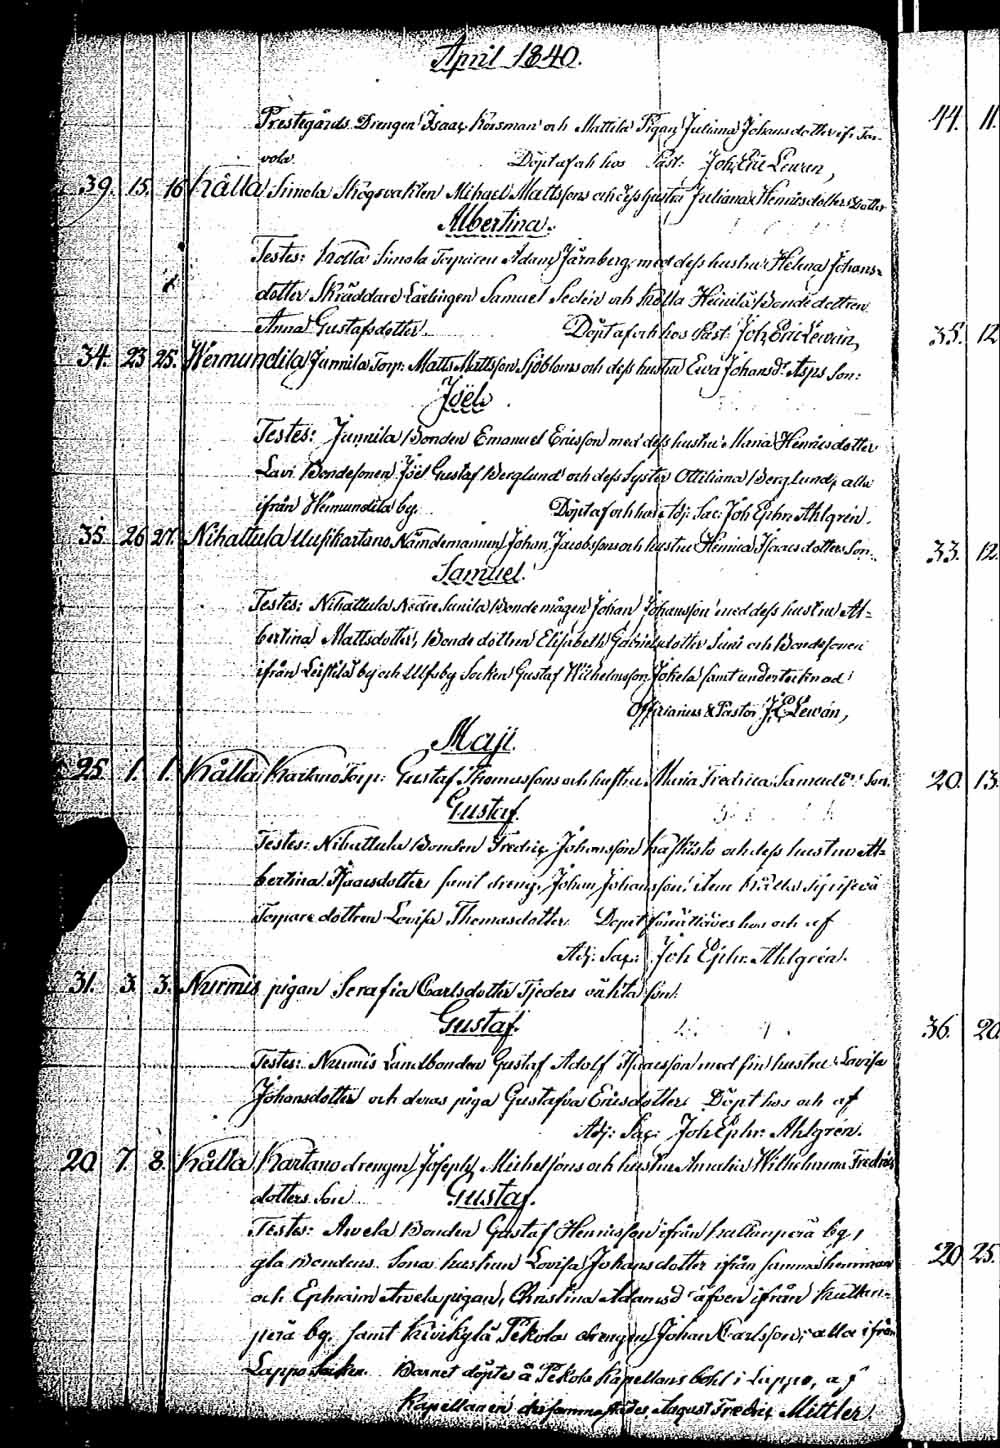 April 1840.
Prestegårds Drengen Isaac Korsman och Mattila Pigan Juliana Johansdotter if.
vola. Döpt af och hos Past: Joh. Eric Lewan,
39. 15. 16 Kålla Simola Skogsvakten Michael Mattssons och dess hustru Juliana Henricsdotters Dotter
Albertina.
Testes: Kålla Simola Torparen Adam Järnberg med dess hustru Helena Johans-
dotter Skräddare Lärlingen Samuel Sedèn och Kålla Heinilä Bondedottren
Anna Gustafsdotter. Döpt af och hos Past: Joh. Eric Lewan,
34. 23 25. Heimundila Junnila Torp: Matts Mattsson Sjöbloms och dess hustru Ewa Johansd:r Asps Son:
Joël.
Testes: Junnila Bonden Emanuel Ericsson med dess hustru Maria Henricsdotter
Lavi Bondesonen Joël Gustaf Berglund och dess Syster Ottiliana Berglund, alla
ifrån Heimundila by. Döpt af och hos Adj: Sac: Joh. Ephr. Ahlgrén.
35. 26 27. Nihattula Uusikartano Nämndemannen Johan Jacobssons och hustru Henrica Isaacsdotters Son:
Samuel.
Testes: Nihattula Nedre Sanila Bondemågen Johan Johansson med dess hustru Al-
bertina Mattsdotter, Bondedottren Elisabeth Gabrielsdotter Sani och Bondesonen
ifrån Leistilä by och Ulfsby Socken Gustaf Wilhelmsson Jokela samt undertecknad
Officiarius & Pastor J. E. Lewan,
Maji.
25. 1. 1. Kålla Kartano Torp: Gustaf Thomassons och hustru Maria Fredrica Samuelsd:rs Son.
Gustaf.
Testes: Nihattula Bonden Fredric Johansson och dess hustru Al-
bertina Isaacsdotter, samt dreng. Johan Johansson, item Kålla
Torpare dottren Lovisa Thomasdotter. Dopet förrättades hos och af
Adj: Sac: Joh Ephr. Ahlgrén.
31. 3. 3. Nurmis pigan Serafia Carlsdotter Tjeders oäkta son.
Gustaf.
Testes: Nurmis Landbonden Gustaf Adolf Isacsson med sin hustru Lovisa
Johansdotter och deras piga Gustafva Ericsdotter. Döpt hos och af
Adj: Sac: Joh Ephr. Ahlgrén.
20. 7. 8. Kålla Kartano drengen Joseph Michelssons och hustru Amalia Wilhelmina Fredrics
dotters Son Gustaf.
Testes: Awela Bonden Gustaf Henricsson ifrån Kattanperä by,
gla Bondens Sonas hustrun Lovisa Johansdotter ifrån samma hemman
och Ephraim Awela pigan, Christina Adamsd:r äfven ifrån Kattan-
perä by, samt Kivikylä Pekola drengen Johan Carlsson; alla ifrån
Lappo Socken. Barnet döptes å Pekola Kapellans bohl i Lappo, af
Kapellanen dersammastädes August Fredric Mittler.
44. 11.
35. 12
33. 12.
20. 13.
36. 20
20 25.